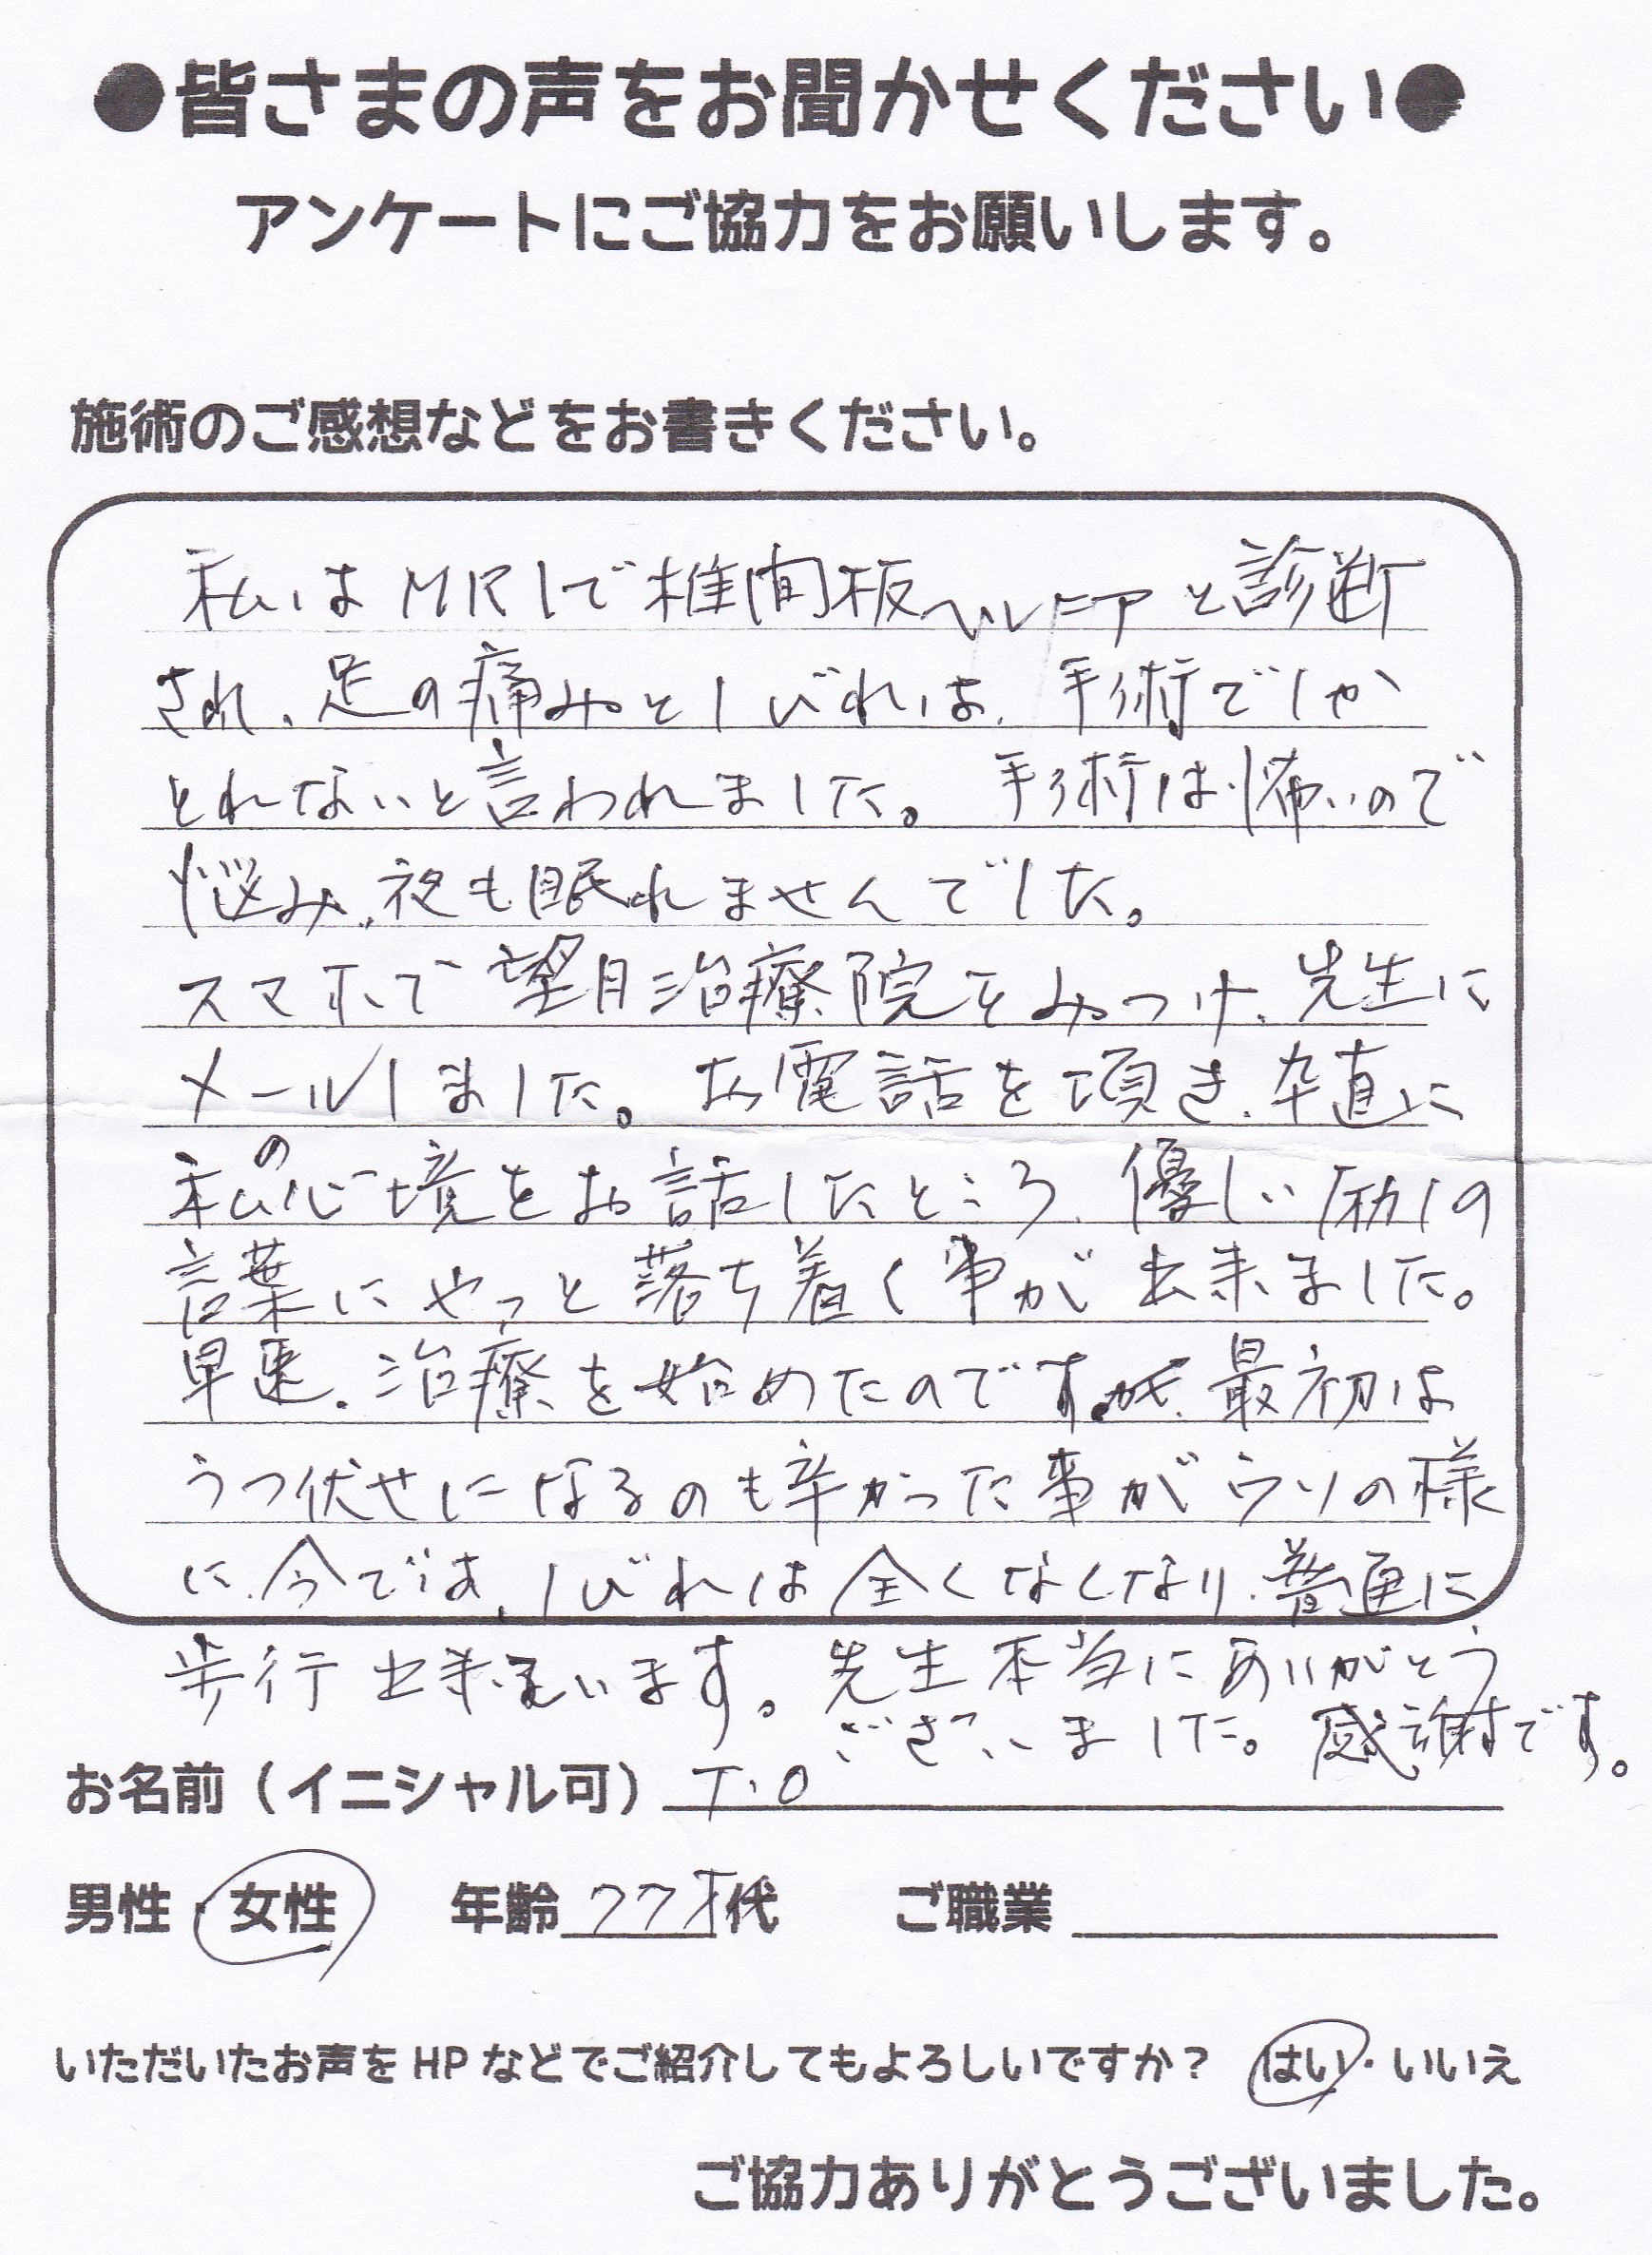 ●皆さまの声をお聞かせください●
アンケートにご協力をお願いします。
施術のご感想などをお書きください。
私はMRIで椎間板ヘルニアと診断
され、足の痛みとしびれは、手術でしか
とれないと言われました。手術は怖いので
悩み、夜も眠れませんでした。
スマホで望月治療院をみつけ、先生に
メールしました。お電話を頂き、卒直に
私の心境をお話したところ、優しい励しの
言葉にやっと落ち着く事が出来ました。
早速、治療を始めたのですが、最初は
うつ伏せになるのも辛かった事がウソの様
に、今では、しびれは全くなくなり、普通に
歩行出来ています。先生本当にありがとう
ございました。感謝です。
お名前（イニシャル可） T.O
男性・女性 年齢 77才代 ご職業
いただいたお声をHPなどでご紹介してもよろしいですか？ はい・いいえ
ご協力ありがとうございました。